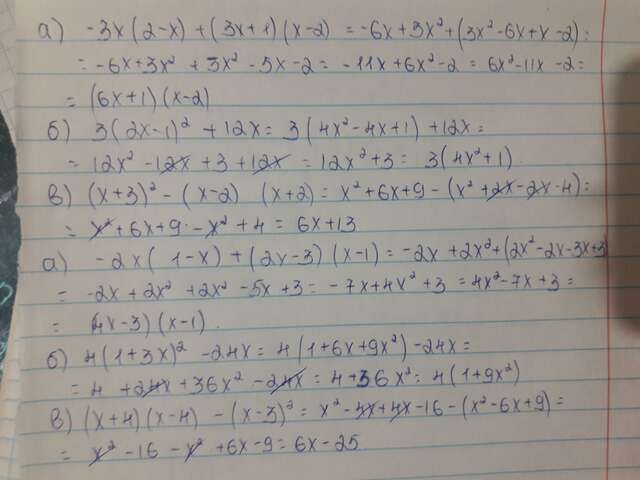 а) -3x(2-x)+(3x+1)(x-2) = -6x+3x²+(3x²-6x+x-2)=
= -6x+3x² + 3x² - 5x-2 = -11x+6x²-2 = 6x²-11x-2=
= (6x+1)(x-2)
б) 3(2x-1)² + 12x = 3(4x²-4x+1)+12x=
= 12x² - 12x + 3 + 12x = 12x²+3 = 3(4x²+1)
в) (x+3)² - (x-2) (x+2) = x²+6x+9 - (x²+2x-2x-4)=
= x²+6x+9 - x² + 4 = 6x+13
а) -2x(1-x)+(2x-3)(x-1) = -2x+2x²+(2x²-2x-3x+3)
= -2x+2x² +2x² -5x+3 = -7x+4x²+3 = 4x²-7x+3=
= (4x-3)(x-1).
б) 4(1+3x)² - 24x = 4(1+6x+9x²)-24x=
= 4 + 24x + 36x² - 24x = 4+36x² = 4(1+9x²)
в) (x+4)(x-4) - (x-3)² = x²-4x+4x-16-(x²-6x+9)=
= x² -16 - x² +6x-9 = 6x-25